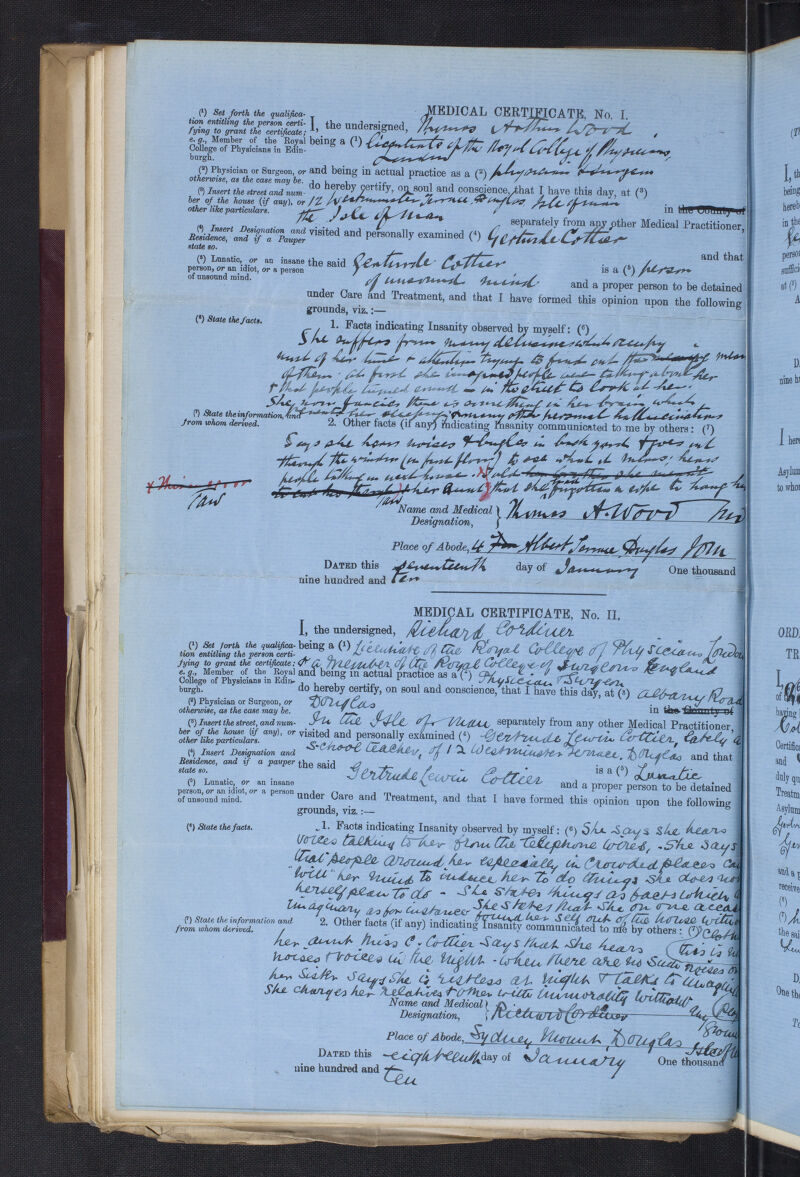 MEDICAL CERTIFICATE, No. I.
(1) Set forth the qualifica-
tion entitling the person certi-
fying to grant the certificate;
e.g., Member of the Royal
College of Physicians in Edin-
burgh.
(2) Physician or Surgeon, or
otherwise, as the case may be.
(3) Insert the street and num-
ber of the house (if any), or
other like particulars.
(4) Insert Designation and
Residence, and if a Pauper
state so.
(5) Lunatic, or an insane
person, or an idiot, or a person
of unsound mind.
(6) State the facts.
(7) State the information, and
from whom derived.
I, the undersigned, Thomas Arthur Wood
being a (1) Licentiate of the Royal College of Physicians,
London
and being in actual practice as a (2) physician & surgeon
do hereby certify, on soul and conscience, that I have this day, at (3)
12 Westminster Terrace Douglas Isle of man in the County of
the Isle of Man separately from any other Medical Practitioner,
visited and personally examined (4) Gertrude Cottier
and that
the said Gertrude Cottier is a (5) person
of unsound mind and a proper person to be detained
under Care and Treatment, and that I have formed this opinion upon the following
grounds, viz.:—
1. Facts indicating Insanity observed by myself: (6)
She suffers from many delusions which occupy
most of her time & attention trying to find out the meaning
of them. At first she imagined people were talking about her
& that people turned round in the street to look at her.
She now fancies there is something in her brain which
prevents her sleeping & many other personal hallucinations
2. Other facts (if any) indicating Insanity communicated to me by others: (7)
Says she hears noises & bugles in back yard & goes out
through the window (on first floor) to see what it means, hears
people talking in next house. Told
her aunt that she had forgotten a rope to hang her
TAW
TAW
Name and Medical Designation, Thomas A. Wood MD
Place of Abode, 4 Albert Terrace Douglas IOM
DATED this seventeenth day of January One thousand
nine hundred and ten
MEDICAL CERTIFICATE, No. II.
(1) Set forth the qualifica-
tion entitling the person certi-
fying to grant the certificate;
e.g., Member of the Royal
College of Physicians in Edin-
burgh.
(2) Physician or Surgeon, or
otherwise, as the case may be.
(3) Insert the street, and num-
ber of the house (if any), or
other like particulars.
(4) Insert Designation and
Residence, and if a pauper
state so.
(5) Lunatic, or an insane
person, or an idiot, or a person
of unsound mind.
(6) State the facts.
(7) State the information and
from whom derived.
I, the undersigned, Richard Cordiner
being a (1) Licentiate of the Royal College of Physicians London
& a Member of the Royal College of Surgeons England
and being in actual practice as a (2) Physician & Surgeon
do hereby certify, on soul and conscience, that I have this day, at (3) Albany Road
Douglas in the County of
In the Isle of Man separately from any other Medical Practitioner,
visited and personally examined (4) Gertrude Lewin Cottier, lately a
School teacher, of 12 Westminster Terrace, Douglas and that
the said Gertrude Lewin Cottier is a (5) Lunatic
and a proper person to be detained
under Care and Treatment, and that I have formed this opinion upon the following
grounds, viz.:—
1. Facts indicating Insanity observed by myself: (6) She says she hears
voices talking to her from the telephone wires, - She says
that people around her especially in crowded places can
"will" her mind to induce her to do things she does not
herself plan to do - She states things as facts which
imaginary as for instance She states that she on one
found her self out of the house
2. Other facts (if any) indicating Insanity communicated to me by others: (7)
her aunt Miss C. Cottier says that she hears (this is
noises & voices in the night - when there are no such noises
her Sister says she is restless at night & talks to
She charges her relatives & other with immorality without
any
Name and Medical Designation, Richard Cordiner
Place of Abode, Sydney Mount, Douglas
DATED this eighteenth day of January One thousand
nine hundred and ten